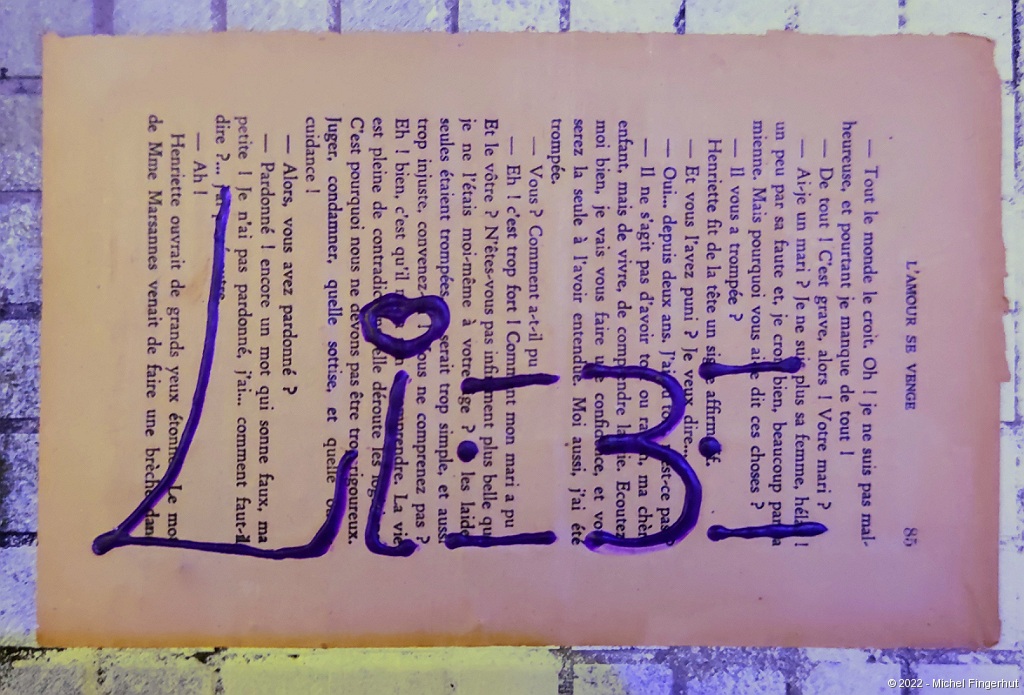 L'AMOUR SE VENGE 85
— Tout le monde le croit. Oh ! je ne suis pas mal-
heureuse, et pourtant je manque de tout !
— De tout ! C'est grave, alors ! Votre mari ?
— Ai-je un mari ? Je ne suis plus sa femme, hélas !
un peu par sa faute et, je crois bien, beaucoup par la
mienne. Mais pourquoi vous ai-je dit ces choses ?
— Il vous a trompée ?
Henriette fit de la tête un signe affirmatif.
— Et vous l'avez puni ? Je veux dire...
— Oui... depuis deux ans. J'ai eu tort, n'est-ce pas ?
— Il ne s'agit pas d'avoir tort ou raison, ma chère
enfant, mais de vivre, de comprendre la vie. Ecoutez-
moi bien, je vais vous faire une confidence, et vous
serez la seule à l'avoir entendue. Moi aussi, j'ai été
trompée.
— Vous ? Comment a-t-il pu
— Eh ! c'est trop fort ! Comment mon mari a pu
Et le vôtre ? N'êtes-vous pas infiniment plus belle que
je ne l'étais moi-même à votre âge ? les laides
seules étaient trompées, serait trop simple, et aussi
trop injuste, convenez- vous ne comprenez pas ?
Eh ! bien, c'est qu'il n'y comprendre. La vie
est pleine de contradictions, elle déroute les
C'est pourquoi nous ne devons pas être trop rigoureux.
Juger, condamner, quelle sotise, et quelle
cuidance !
— Alors, vous avez pardonné ?
— Pardonné ! encore un mot qui sonne faux, ma
petite ! Je n'ai pas pardonné, j'ai... comment faut-il
dire ?...
— Ah !
Henriette ouvrait de grands yeux étonnés. Le mot
de Mme Marsannes venait de faire une brèche dans
© 2022 - Michel Fingerhut